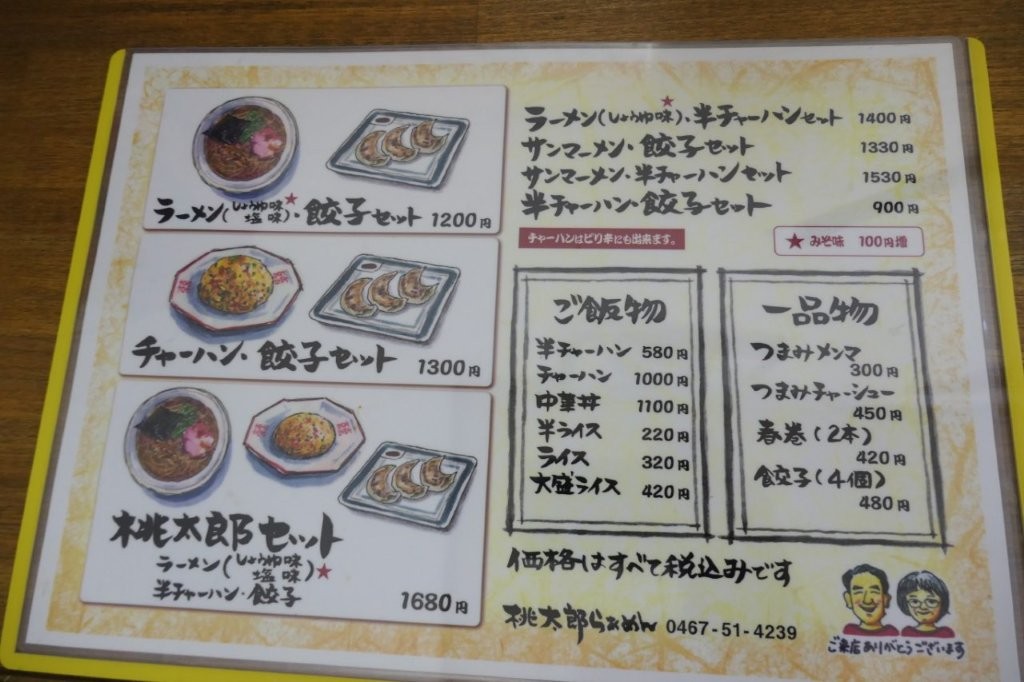 ラーメン(しょうゆ味 塩味)★・餃子セット 1200円
チャーハン・餃子セット 1300円
桃太郎セット
ラーメン(しょうゆ味 塩味)★
半チャーハン・餃子 1680円
ラーメン(しょうゆ味)★・半チャーハンセット 1400円
サンマーメン・餃子セット 1330円
サンマーメン・半チャーハンセット 1530円
半チャーハン・餃子セット 900円
チャーハンはピリ辛にも出来ます。
★ みそ味 100円増
ご飯物
半チャーハン 580円
チャーハン 1000円
中華丼 1100円
半ライス 220円
ライス 320円
大盛ライス 420円
一品物
つまみメンマ
300円
つまみチャーシュー
450円
春巻(2本)
420円
餃子(4個)
480円
価格はすべて税込みです
桃太郎らぁめん 0467-51-4239
ご来店ありがとうございます